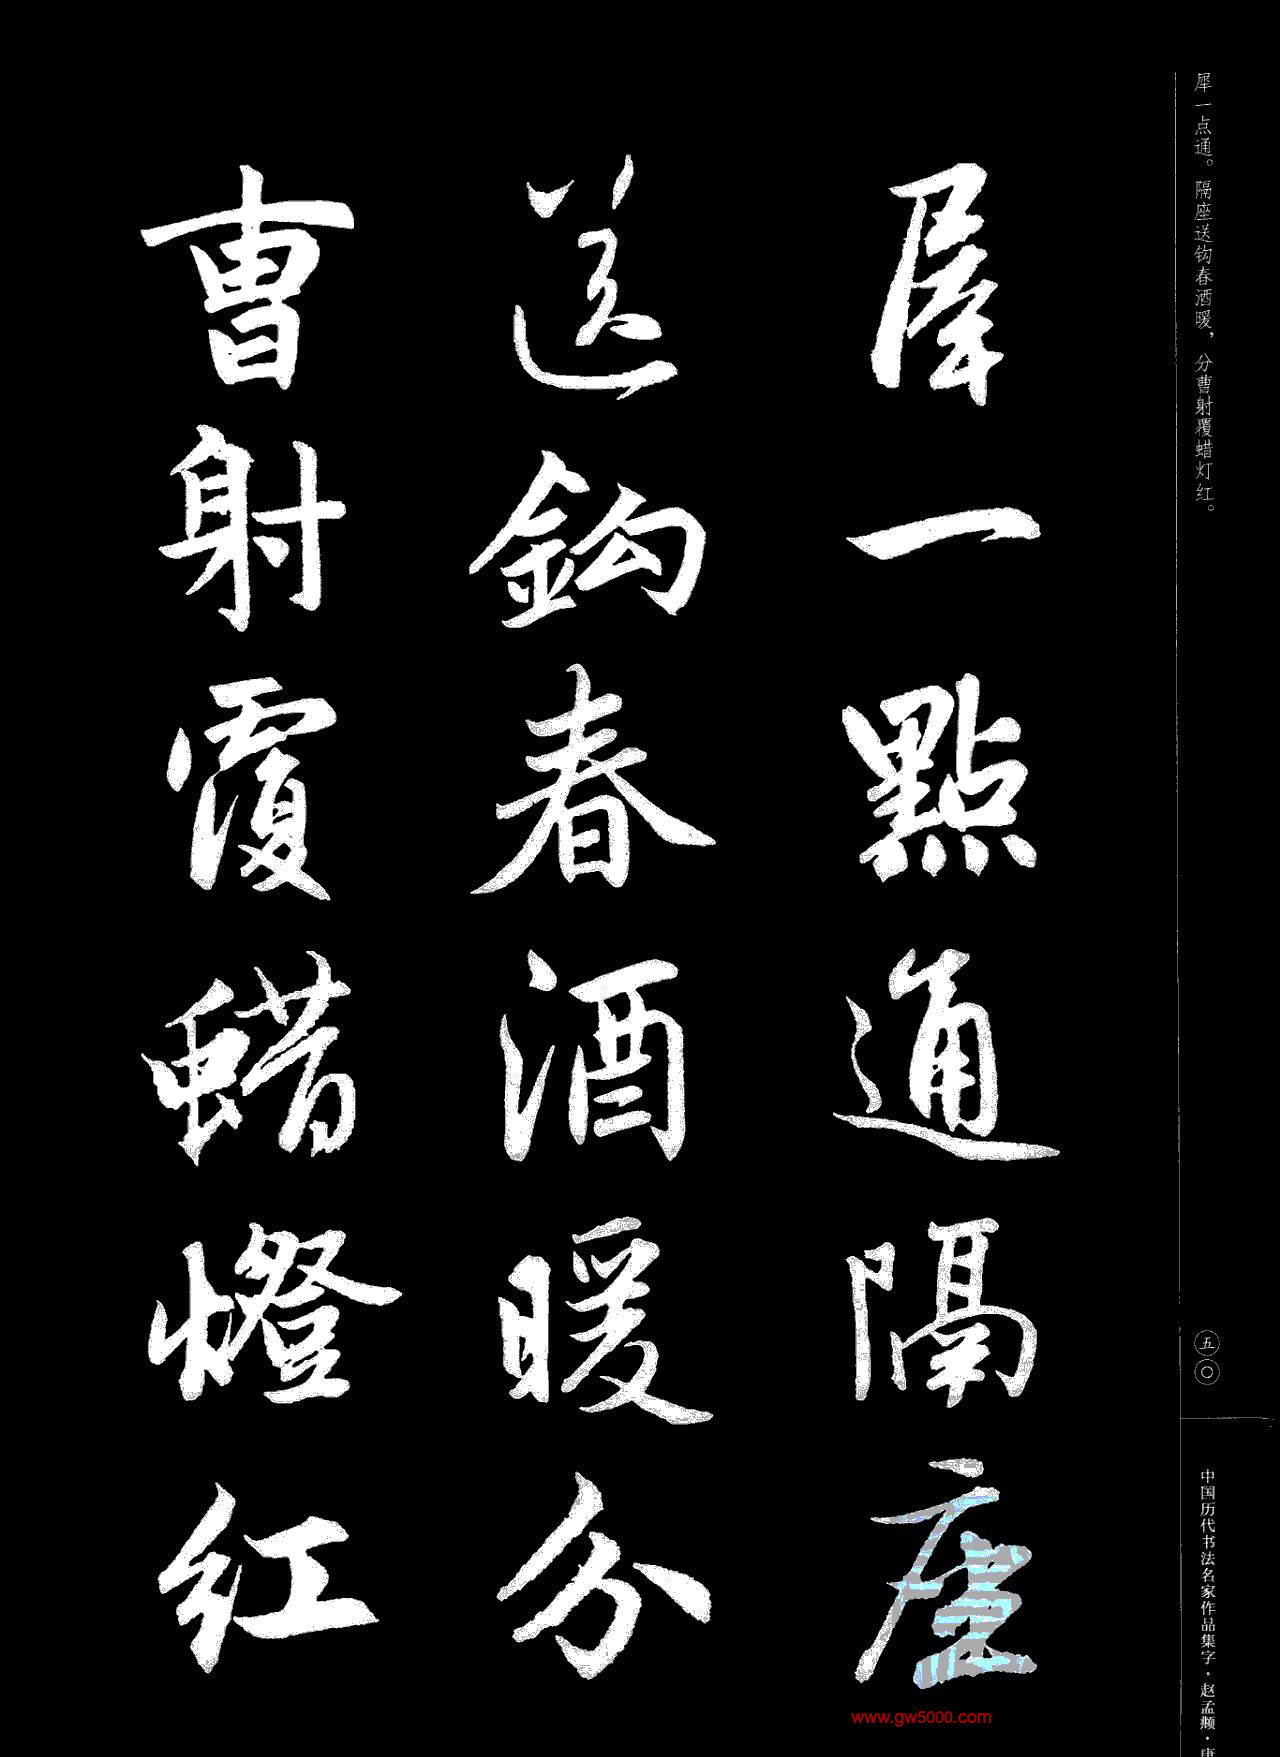 犀一点通。隔座送钩春酒暖，分曹射覆蜡灯红。
犀一點通隔座
送鈎春酒暖分
曹射覆蜡燈红
五〇
中国历代书法名家作品集字·赵孟頫·
www.gw5000.com